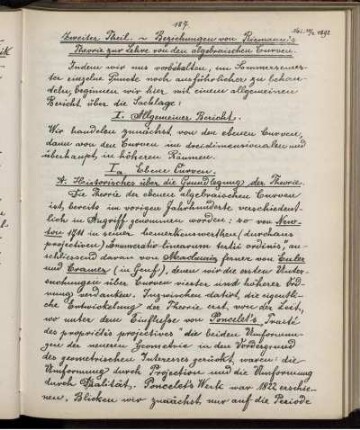 189.
Zweiter Theil. – Beziehungen von Riemann's
Theorie zur Lehre von den algebraischen Curven.
Indem wir uns vorbehalten, im Sommersemes-
ter einzelne Punkte noch ausführlicher zu behan-
deln, beginnen wir hier mit einem allgemeinen
Bericht über die Sachlage:
I. Allgemeiner Bericht.
Wir handeln zunächst von den ebenen Curven,
dann von den Curven im dreidimensionalen und
überhaupt, in höheren Räumen.
Ia Ebene Curven.
A. Historisches über die Grundlegung der Theorie.
Die Theorie der ebenen algebraischen Curven
ist, bereits im vorigen Jahrhundert verschiedent-
lich in Angriff genommen worden: so von New-
ton in seiner bemerkenswerthen (durchaus
projectiven) „Enumeratio linearum tertii ordinis", an-
schliessend daran von ferner von Euler
und Cramer (in Genf), denen wir die ersten Unter-
suchungen über Curven vierter und höherer Ord-
nung verdanken. Inzwischen datirt, die eigent-
liche Entwickelung der Theorie erst von der Zeit,
wo unter dem Einflusse von Poncelet's „Traité
des propriétés projectives" die beiden Umformun-
gen der neueren Geometrie in den Vordergrund
des geometrischen Interesses gerückt waren: die
Umformung durch Projection und die Umformung
durch Dualität. Poncelet's Werk war 1822 erschie-
nen. Blicken wir zunächst nur auf die Periode